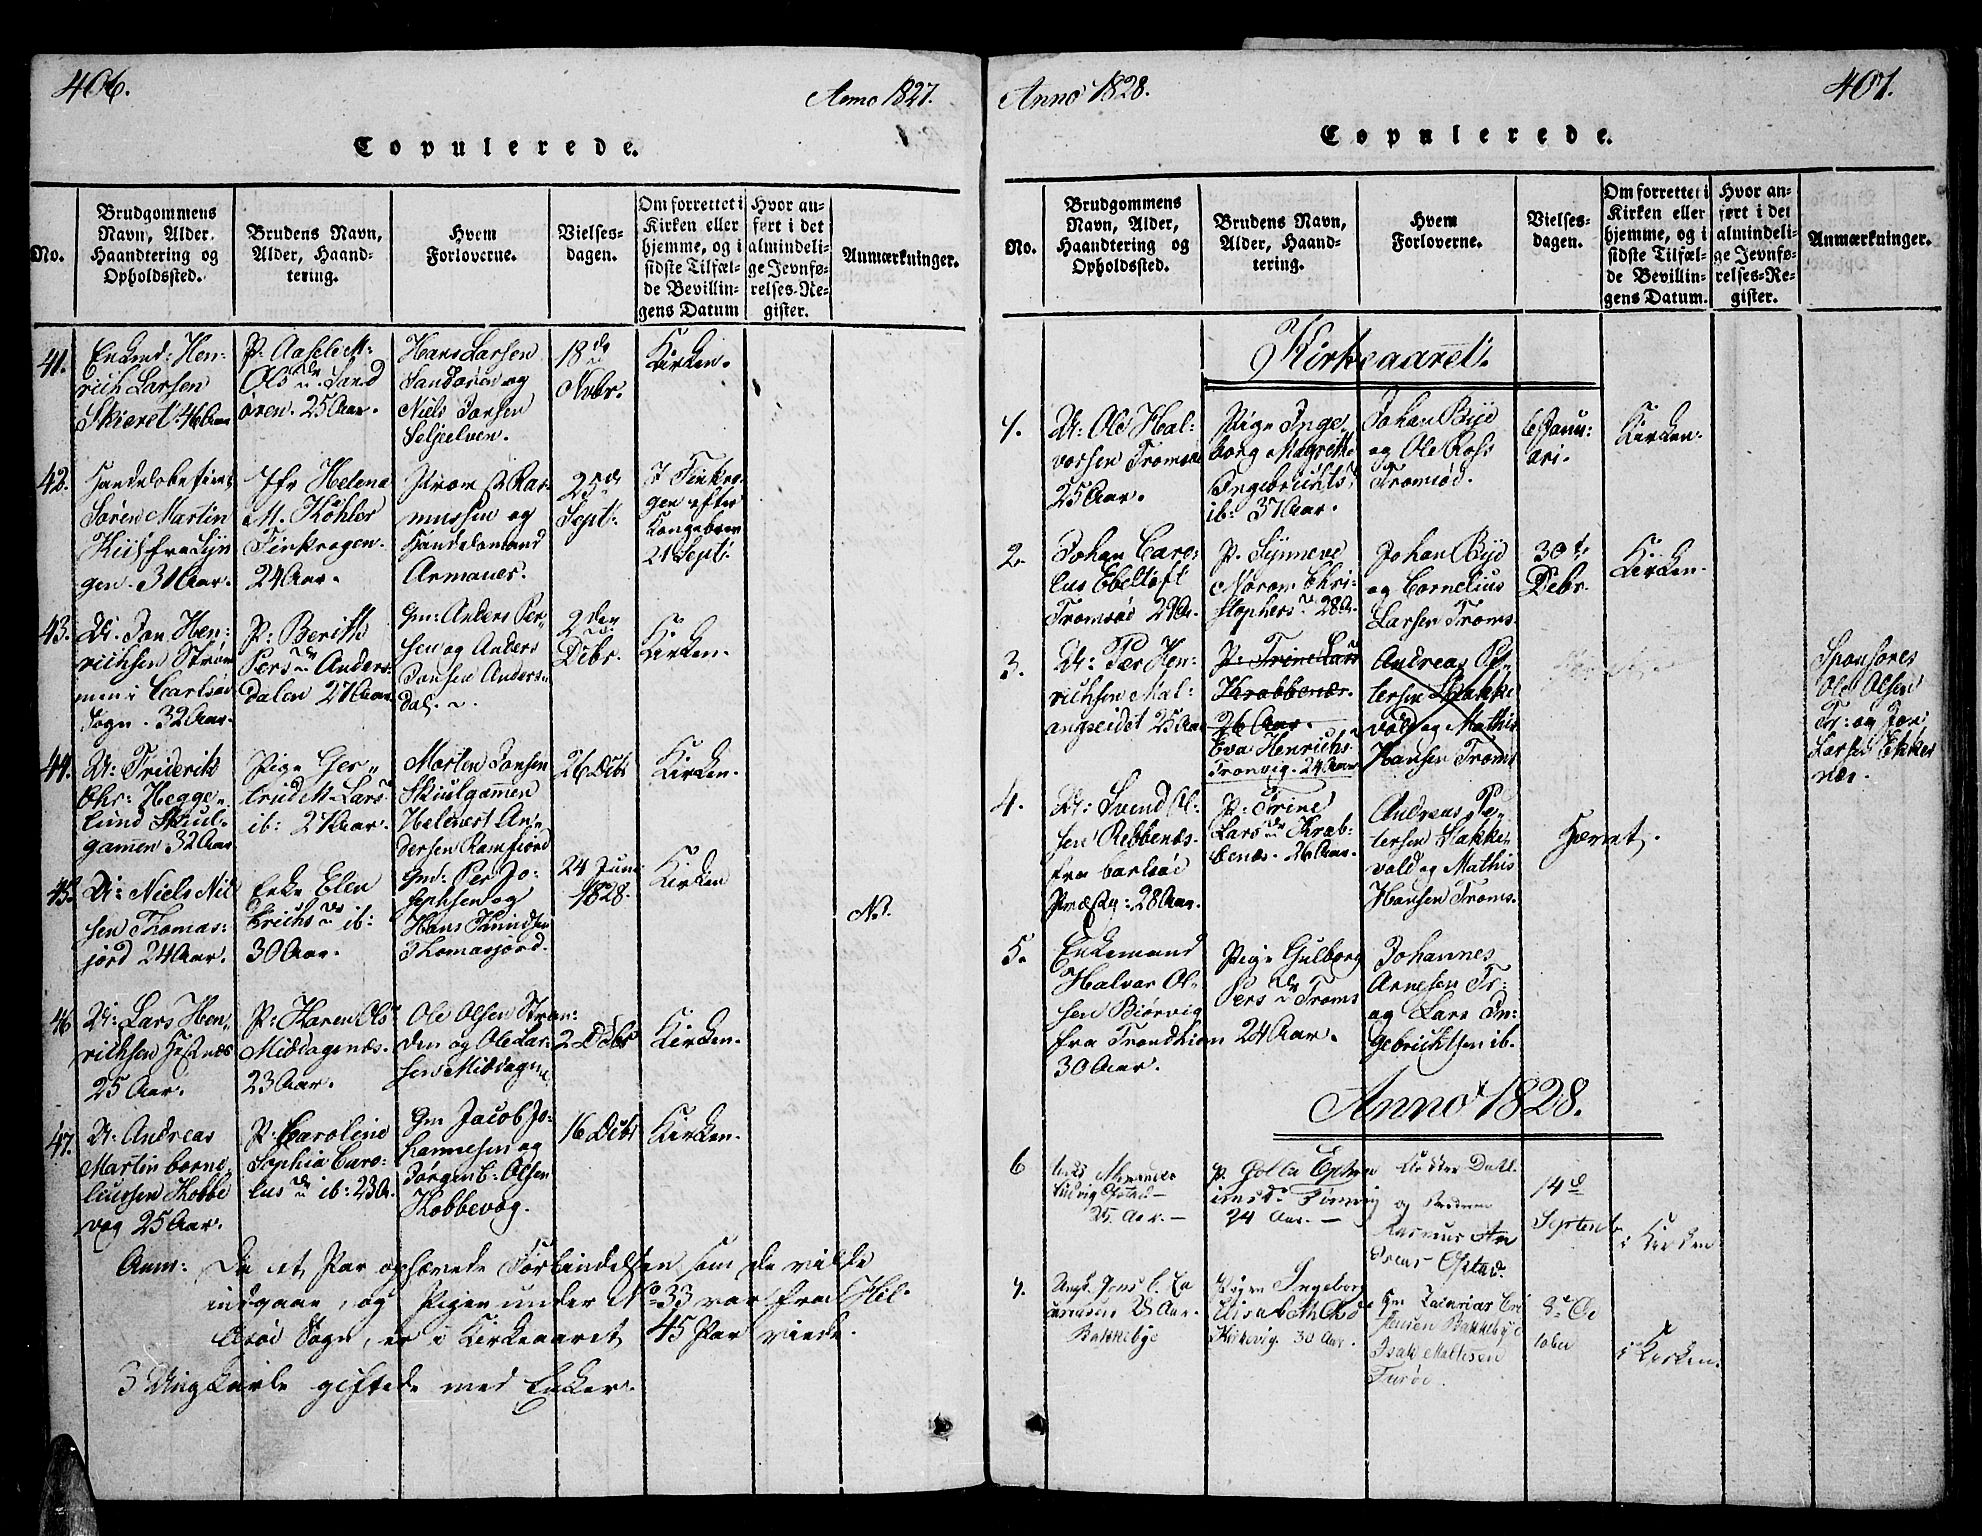 406.
Anno 1827.
Copulerede.
No.
Brudgommens
Navn, Alder,
Haandtering og
Opholdssted.
Brudens Navn,
Alder, Haand-
tering.
Hvem
Forloverne.
Vielses-
dagen.
Om forrettet i
Kirken eller
hjemme, og i
sidste Tilfæl-
de Bevillin-
gens Datum
Hvor an-
ført i det
almindeli-
ge Jevnfø-
relses-Re-
gister.
Anmærkninger.
41.
Enkmd: Hen-
rich Larsen
Skieret 46 Aar
P: Aasele M:
Ols Sand
ören. 25 Aar.
Hans Larsen
Sandören og
Niels Jonsen
Seljelven.
18de
Nvbr.
Kirken.
42.
Handelsbetient
Sören Martin
Kiil fra Lyn
gen. 31 Aar.
Jfr Helena
M. Köhler
Finkrogen.
24 Aar.
Ras-
mussen og
Handelsmand
Armauer.
25de
Sept:
I Finkro-
gen efter
Kongebrev
21 Sept:
43.
U: Jon Hen-
richsen Ström
men i Carlsöe
Sogn. 32 Aar.
P: Berith
Pers Anders-
dalen 27 Aar
Gm: Anders Per-
sen og Anders
Jonsen Anders-
dal.
2den
Debr.
Kirken.
44.
U: Friderik
Chr: Hegge-
lund Skiul-
gamen 32 Aar
Pige Ger-
trud M. Lars
ib: 27 Aar.
Morten Jonsen
Skiulgamen
Helmert An-
dersen Ramfiord
26 Debr
Kirken.
45.
U: Niels Niel
sen Thomas-
jord 24 Aar.
Enke Elen
Erichs ib:
30 Aar.
Gm: Per Jo-
sephsen og
Hans Knudsen
Thomasjord.
24 Juni
1828.
Kirken
N.
46
U: Lars Hen-
richsen Hestnæs
25 Aar.
P: Karen Ols
Middagsnæs.
23 Aar.
Ole Olsen Stran-
den og Ole Lar-
sen Middagsn.
2 Debr
Kirken.
47.
U: Andreas
Martin Corne-
liussen Kobbe
vog 25 Aar.
P: Caroline
Sophia Caro-
lus ib: 23 A.
Gm Jacob Jo-
hannesen og
Jörgen C: Olsen
Kobbevog.
16 Debr
Kirken.
Anm: Da et Par ophævede Forbindelsen som de vilde
indgaae, og Pigen under No 33 var fra Hel-
Sogn, er i Kirkeaaret 45 Par viede.
3 Ungkarle giftede med Enker.
Anno 1828.
407.
Copulerede.
No.
Brudgommens
Navn, Alder,
Haandtering og
Opholdssted.
Brudens Navn,
Alder, Haand-
tering.
Hvem
Forloverne.
Vielses-
dagen.
Om forrettet i
Kirken eller
hjemme, og i
sidste Tilfæl-
de Bevillin-
gens Datum.
Hvor an-
ført i det
almindeli-
ge Jevnfø-
relses-Re-
gister.
Anmærkninger.
Kirkeaaret.
1.
U: Ole Hal-
vorsen Tromsöe
25 Aar.
Pige Inge-
borg Magrethe
Engebrichts
ib: 37 Aar.
Johan Bye
og Ole Ross
Tromsöd.
6 Janu-
ari.
Kirken.
2.
Johan Caro-
lus Ebeltoft
Tromsöd 29 A.
P. Synneve
Noram Chri-
stophers 28 A.
Johan Bye
og Cornelius
Larsen Troms.
30te
Debr.
Kirken.
3.
U: Per Hen-
richsen Mal-
angseidet 25 Aar
P: Trine Lars
Krabbenæs.
26 Aar.
Eva Henrichs
Tronvig. 24 Aar
Andreas Pe-
tersen Hakke
vold og Mathis
Hansen Troms
Sponsores
Ole Olsen
Tr: og Jon
Larsen Ekker
næs.
4.
U: Svend Ol-
sen Rebbenæs
fra Carlsöe
Præstg: 28 Aar.
P: Trine
Lars Krab-
benæs. 26 Aar.
Andreas Pe-
tersen Hakke-
vold og Mathis
Hansen Troms.
Hævet.
5.
Enkemand
Halvor Ol-
sen Biörvig
fra Trondhiem
30 Aar.
Pige Gulborg
Pers Troms
24 Aar.
Johannes
Arnesen Tr:
og Lars In-
gebrichtsen ib.
Anno 1828.
6
Ludvig
25 Aar.
P.
24 Aar.
Klokker Dahl
og
Rasmus
14de
Septemb
i Kirken
7.
Ungk. Jens C.
28 Aar.
Bakkebye
Pigen Ingeborg
Elisabeth
30 Aar.
Gm Zacharias
Bakkebye
Isak Mathisen
8de Oc
tober
i Kirken.